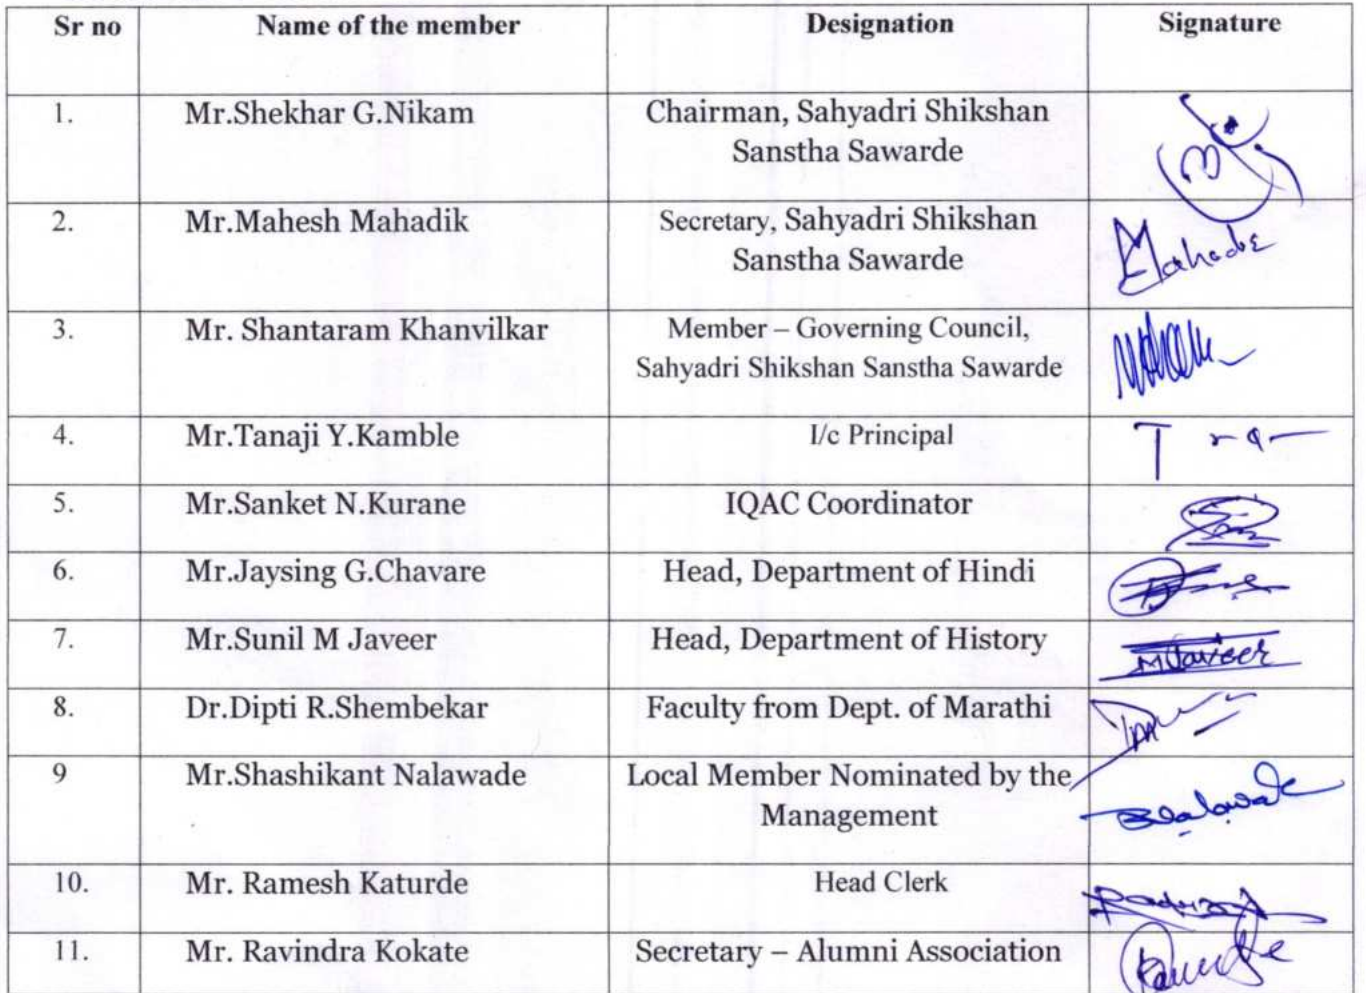 Sr no Name of the member Designation Signature
1. Mr.Shekhar G.Nikam Chairman, Sahyadri Shikshan
Sanstha Sawarde
2. Mr.Mahesh Mahadik Secretary, Sahyadri Shikshan
Sanstha Sawarde
3. Mr. Shantaram Khanvilkar Member – Governing Council,
Sahyadri Shikshan Sanstha Sawarde
4. Mr.Tanaji Y.Kamble I/c Principal
5. Mr.Sanket N.Kurane IQAC Coordinator
6. Mr.Jaysing G.Chavare Head, Department of Hindi
7. Mr.Sunil M Javeer Head, Department of History MJaveer
8. Dr.Dipti R.Shembekar Faculty from Dept. of Marathi
9 Mr.Shashikant Nalawade Local Member Nominated by the
Management
10. Mr. Ramesh Katurde Head Clerk
11. Mr. Ravindra Kokate Secretary – Alumni Association